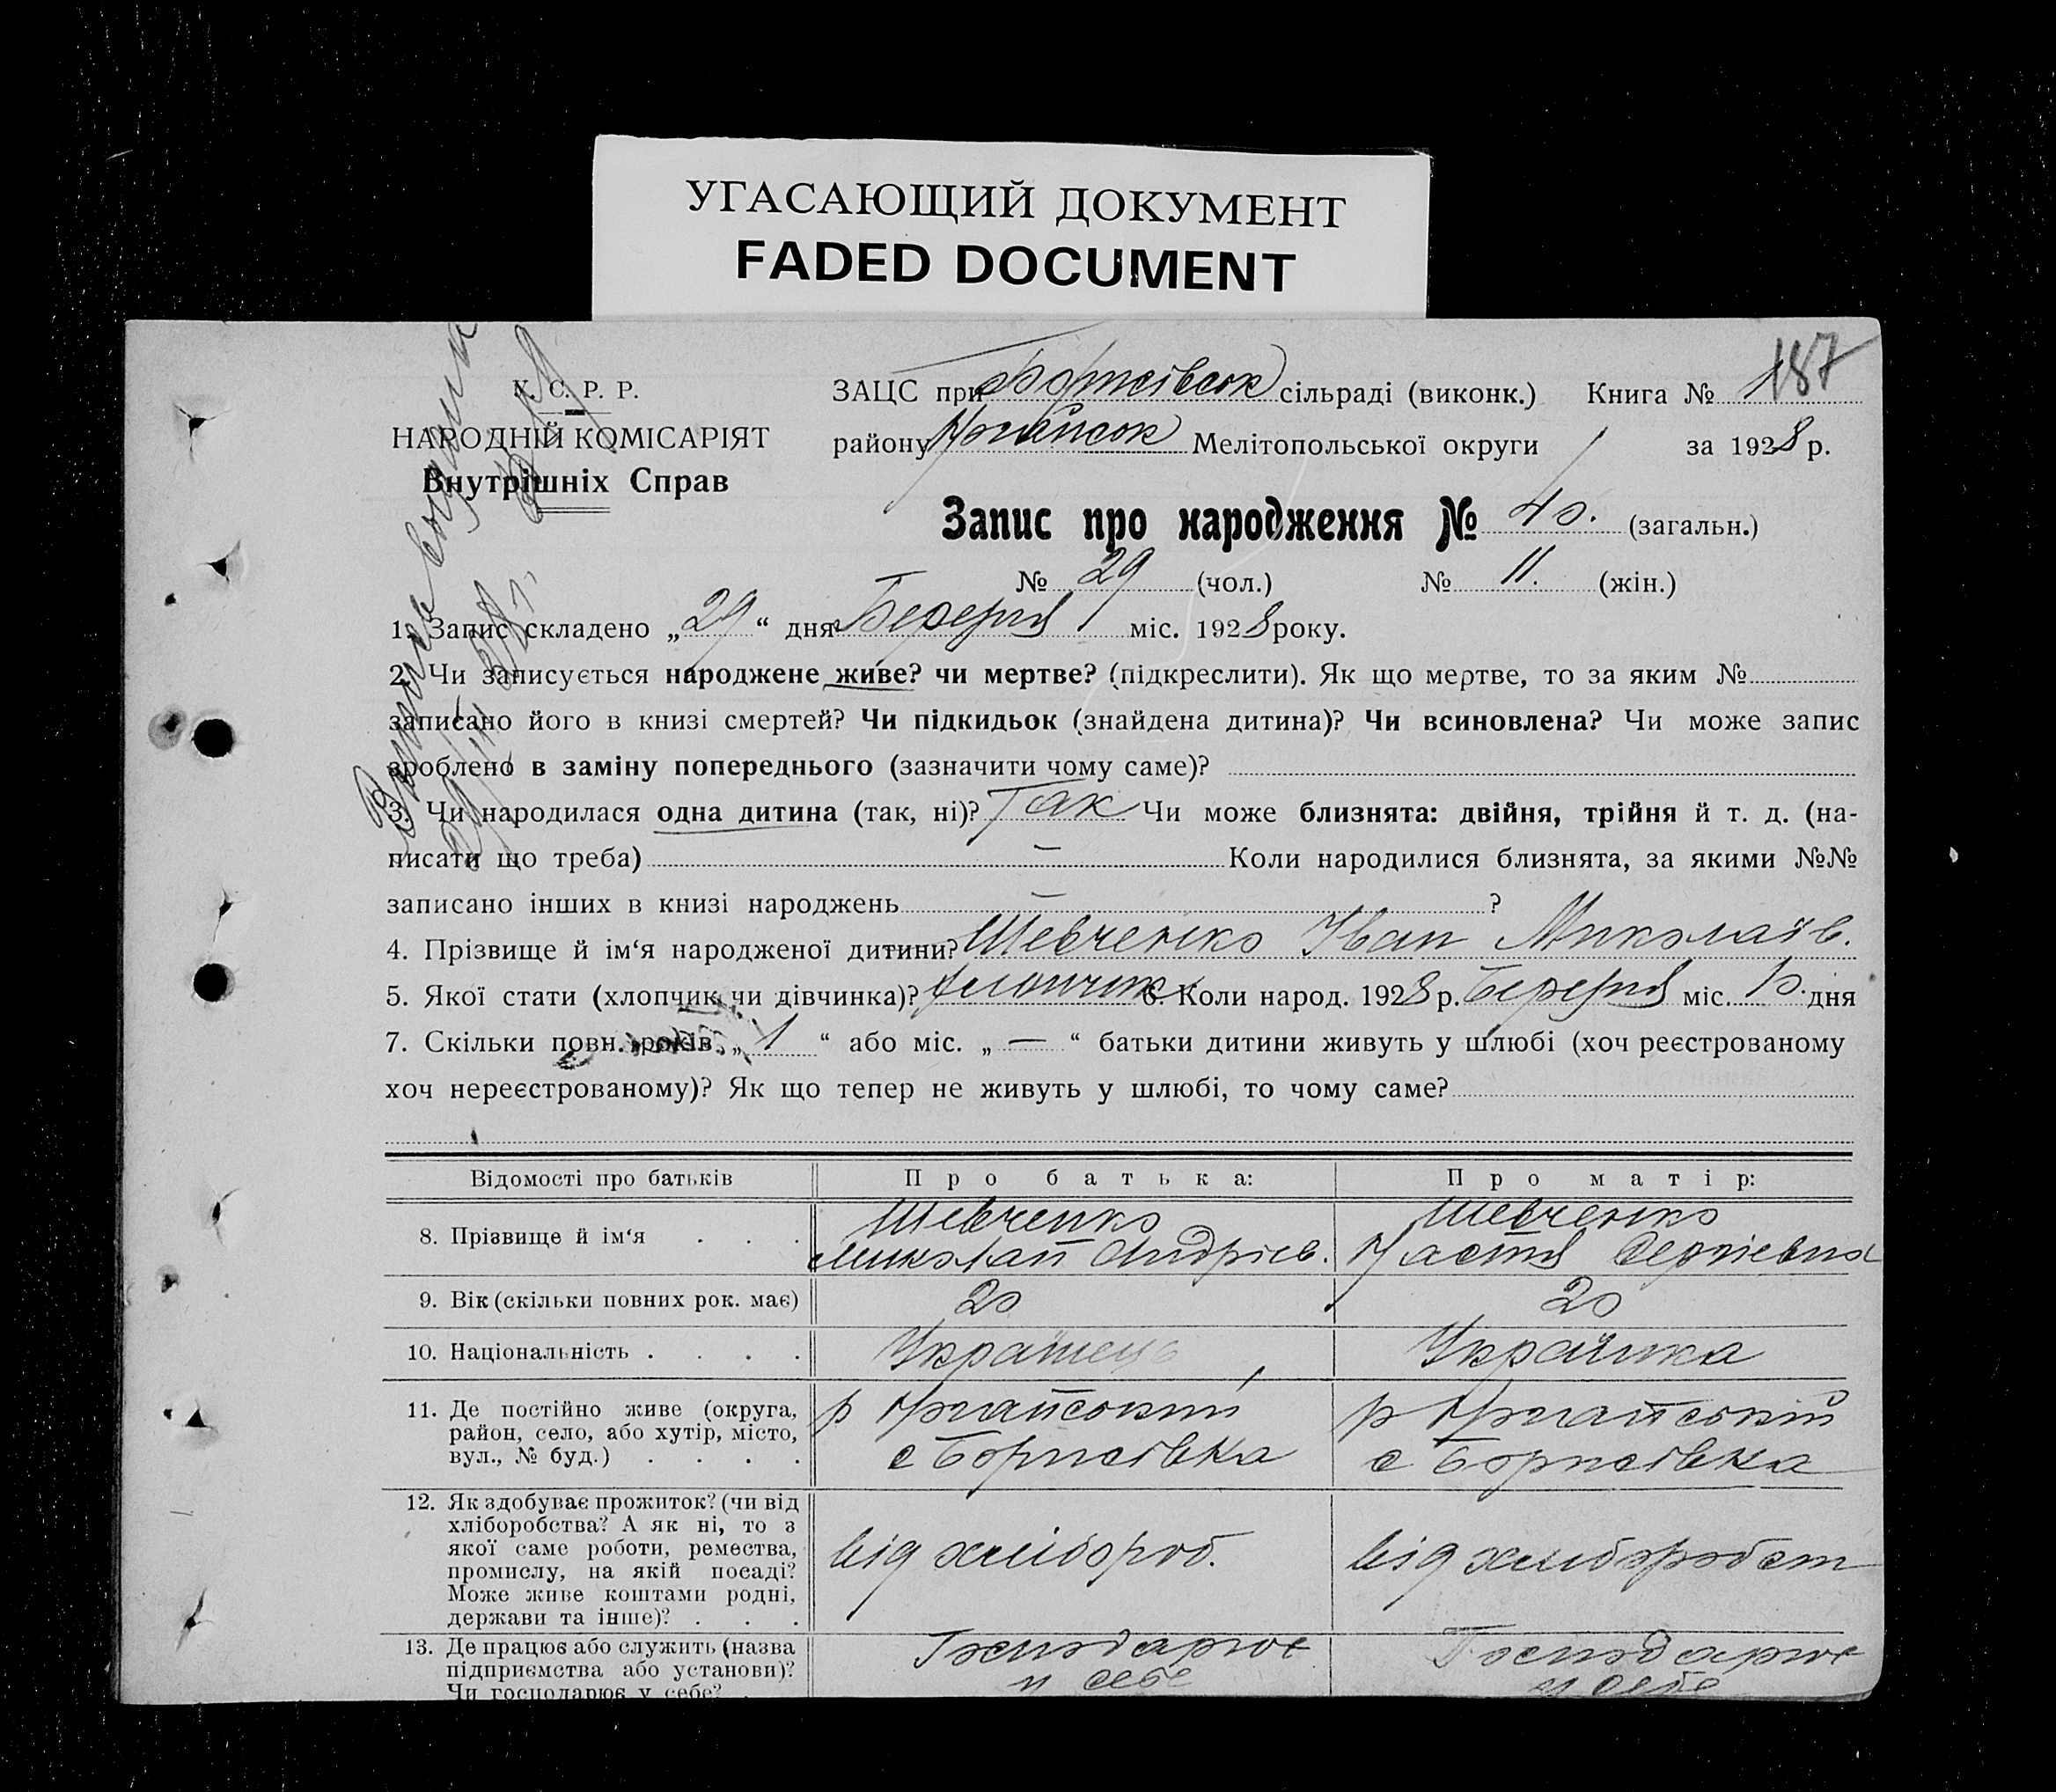 УГАСАЮЩИЙ ДОКУМЕНТ
FADED DOCUMENT
187
У. С. Р. Р.
НАРОДНІЙ КОМІСАРІЯТ
Внутрішніх Справ
ЗАЦС при Борисівськ сільраді (виконк.) Книга № 1
району Мелітопольської округи за 1928 р.
Запис про народження № 40. (загальн.)
№ 29 (чол.) № 11. (жін.)
1. Запис складено „29“ дня Березня міс. 1928 року.
2. Чи записується народжене живе? чи мертве? (підкреслити). Як що мертве, то за яким №
записано його в книзі смертей? Чи підкидьок (знайдена дитина)? Чи всиновлена? Чи може запис
зроблено в заміну попереднього (зазначити чому саме)?
3. Чи народилася одна дитина (так, ні)? Так Чи може близнята: двійня, трійня й т. д. (на-
писати що треба) — Коли народилися близнята, за якими №№
записано інших в книзі народжень — ?
4. Прізвище й ім‘я народженої дитини? Шевченко Іван Миколаїв.
5. Якої стати (хлопчик чи дівчинка)? хлопчик 6. Коли народ. 1928 р. Березня міс. 10. дня
7. Скільки повн. років „1“ або міс. „—“ батьки дитини живуть у шлюбі (хоч реєстрованому
хоч нереєстрованому)? Як що тепер не живуть у шлюбі, то чому саме?
Відомості про батьків Про батька: Про матір:
8. Прізвище й ім‘я . . . Шевченко Миколай Андріев. Шевченко Настя Сергіевна
9. Вік (скільки повних рок. має) 20 20
10. Національність . . . . Українець Українка
11. Де постійно живе (округа,
район, село, або хутір, місто,
вул., № буд.) . . . .
р с Борисівка р с Борисівка
12. Як здобуває прожиток? (чи від
хліборобства? А як ні, то з
якої саме роботи, ремества,
промислу, на якій посаді?
Може живе коштами родні,
держави та інше)? . . .
від хлібороб. від хлібороб
13. Де працює або служить (назва
підприємства або установи)?
Чи господарює у себе? .
Господарює у себе Господарює у себе